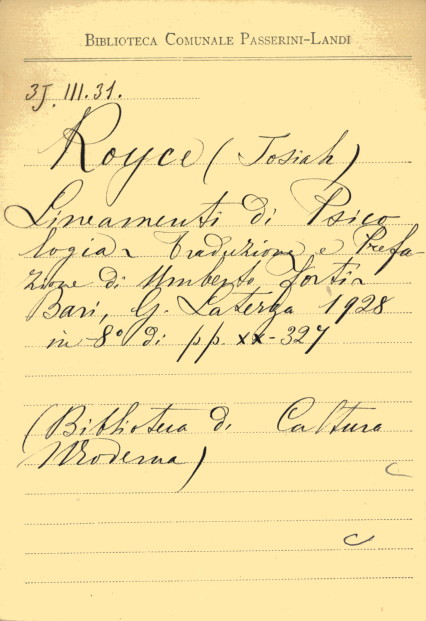 BIBLIOTECA COMUNALE PASSERINI-LANDI
3J. III. 31.
Royce (Josiah)
Lineamenti di Psico
logia - Traduzione e Prefa-
zione di Umberto Forti -
Bari, G. Laterza 1928
in-8° di pp. xx-327
(Biblioteca di Cultura
Moderna)